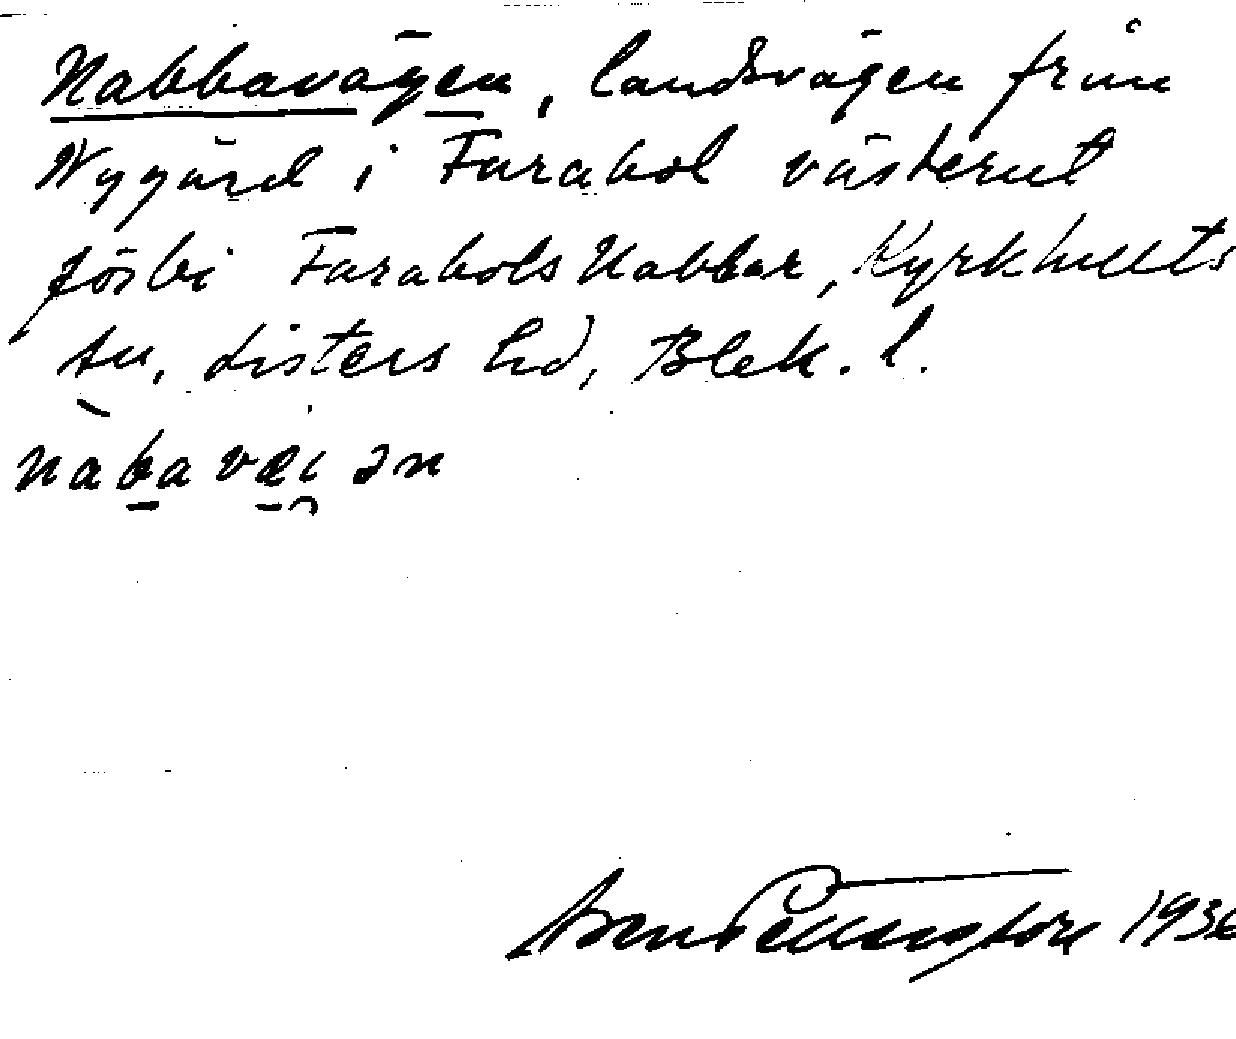 Nabbavägen, landsvägen från
Nygård i Farabol västerut
förbi Farabols Nabbar, Kyrkhults
sn, Listers hd, Blek. l.
nàbavæi̯ən
1936